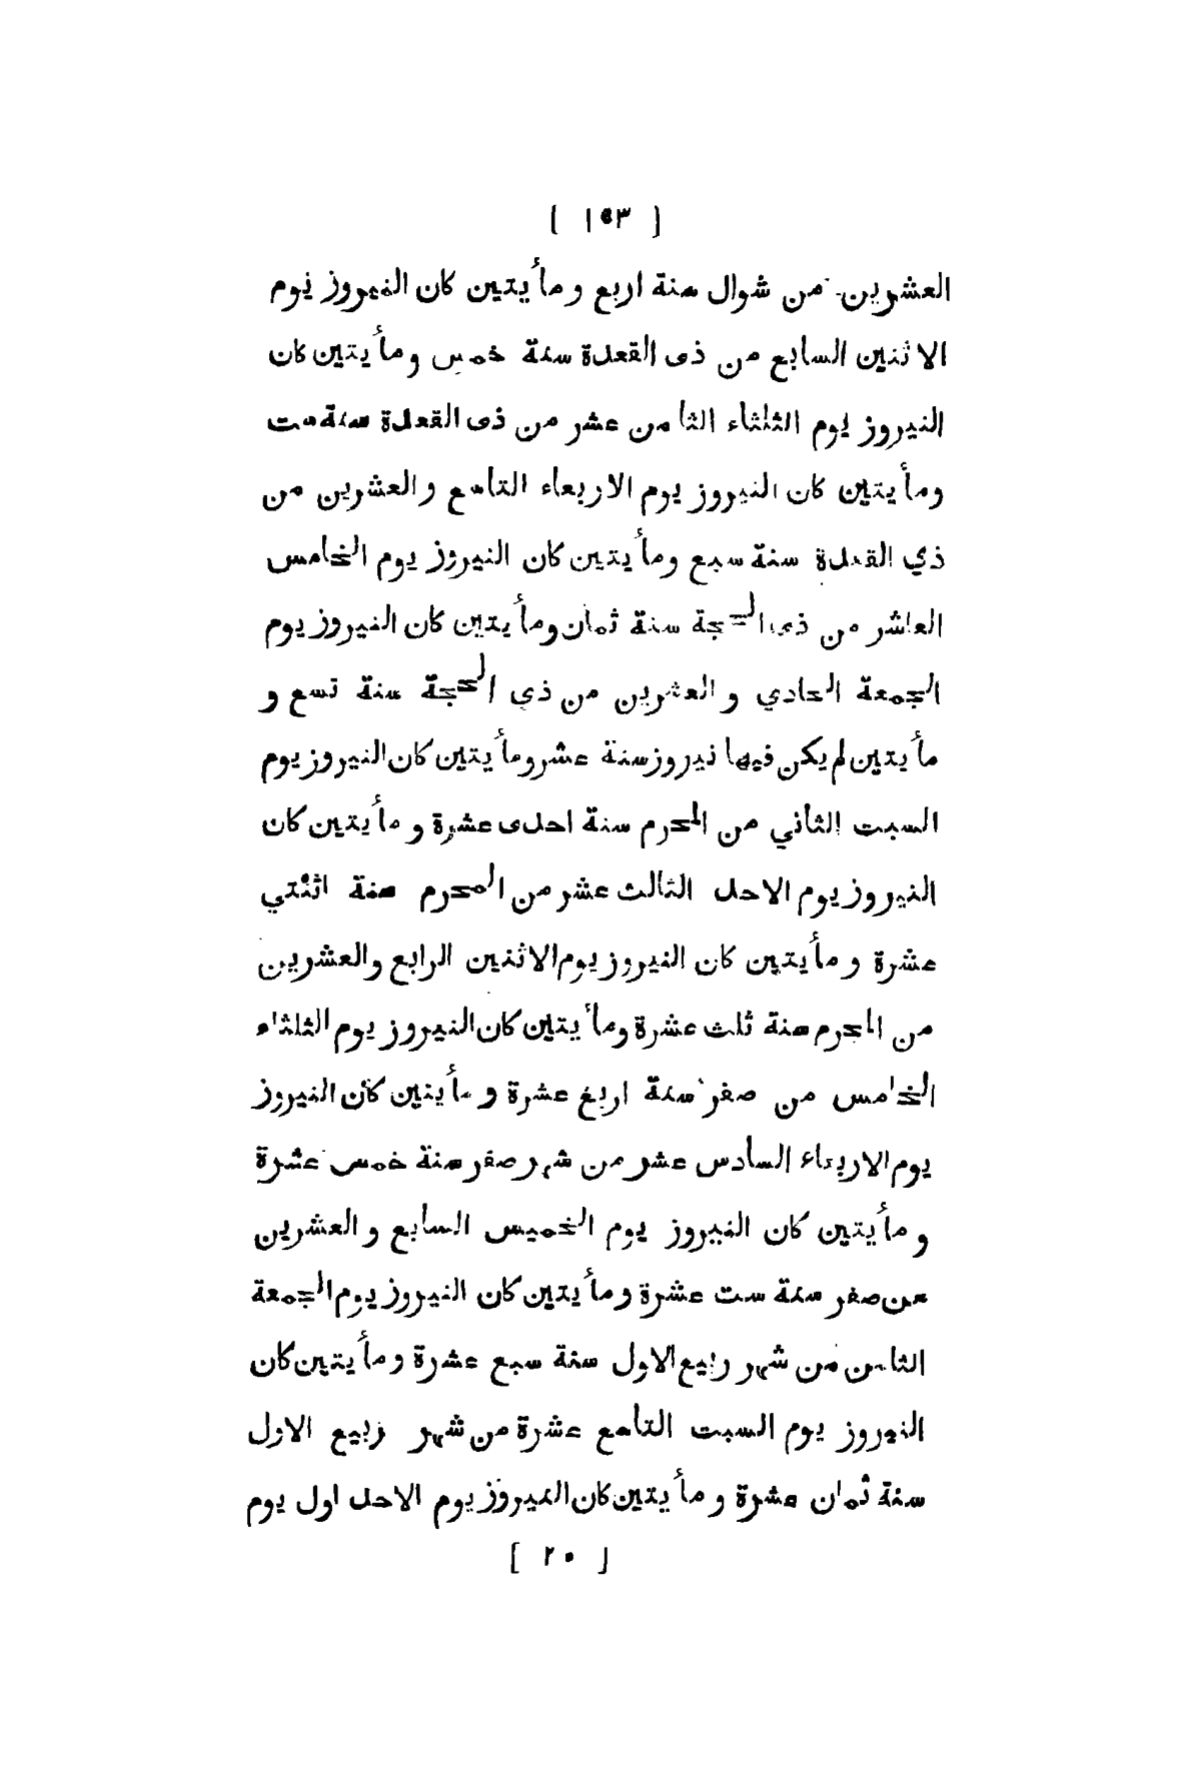 [ ١٥٣ ]
العشرين من شوال سنة اربع ومأيتين كان النيروز يوم
الاثنين السابع من ذى القعدة سنة خمس ومأيتين كان
النيروز يوم الثلثاء الثامن عشر من ذى القعدة سنة ست
ومأيتين كان النيروز يوم الاربعاء التاسع والعشرين من
ذي القعدة سنة سبع ومأيتين كان النيروز يوم الخامس
العاشر من ذى الحجة سنة ثمان ومأيتين كان النيروز يوم
الجمعة الحادي والعشرين من ذي الحجة سنة تسع و
مأيتين لم يكن فيها نيروز سنة عشر ومأيتين كان النيروز يوم
السبت الثاني من المحرم سنة احدى عشرة ومأيتين كان
النيروز يوم الاحد الثالث عشر من المحرم سنة اثنتي
عشرة ومأيتين كان النيروز يوم الاثنين الرابع والعشرين
من المحرم سنة ثلث عشرة ومأيتين كان النيروز يوم الثلثاء
الخامس من صفر سنة اربع عشرة ومأيتين كان النيروز
يوم الاربعاء السادس عشر من شهر صفر سنة خمس عشرة
ومأيتين كان النيروز يوم الخميس السابع والعشرين
من صفر سنة ست عشرة ومأيتين كان النيروز يوم الجمعة
الثامن من شهر ربيع الاول سنة سبع عشرة ومأيتين كان
النيروز يوم السبت التاسع عشرة من شهر ربيع الاول
سنة ثمان عشرة ومأيتين كان النيروز يوم الاحد اول يوم
[ ٢٠ ]